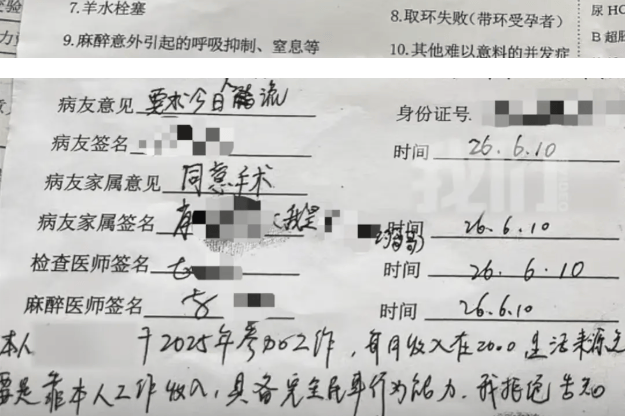 7.羊水栓塞
8.取环失败(带环受孕者)
尿HC
9.麻醉意外引起的呼吸抑制、窒息等
10.其他难以意料的并发症
B超胚
病友意见 要求今日人流
身份证号.
病友签名
时间 26.6.10
病友家属意见 同意手术
病友家属签名 (我是
时间 26.6.10
检查医师签名
时间 26.6.10
麻醉医师签名
时间 26.6.10
本人 于2025年参加工作,每月收入在2000,生活来源主
要是靠本人工作收入,具备完全民事行为能力.我拒绝告知